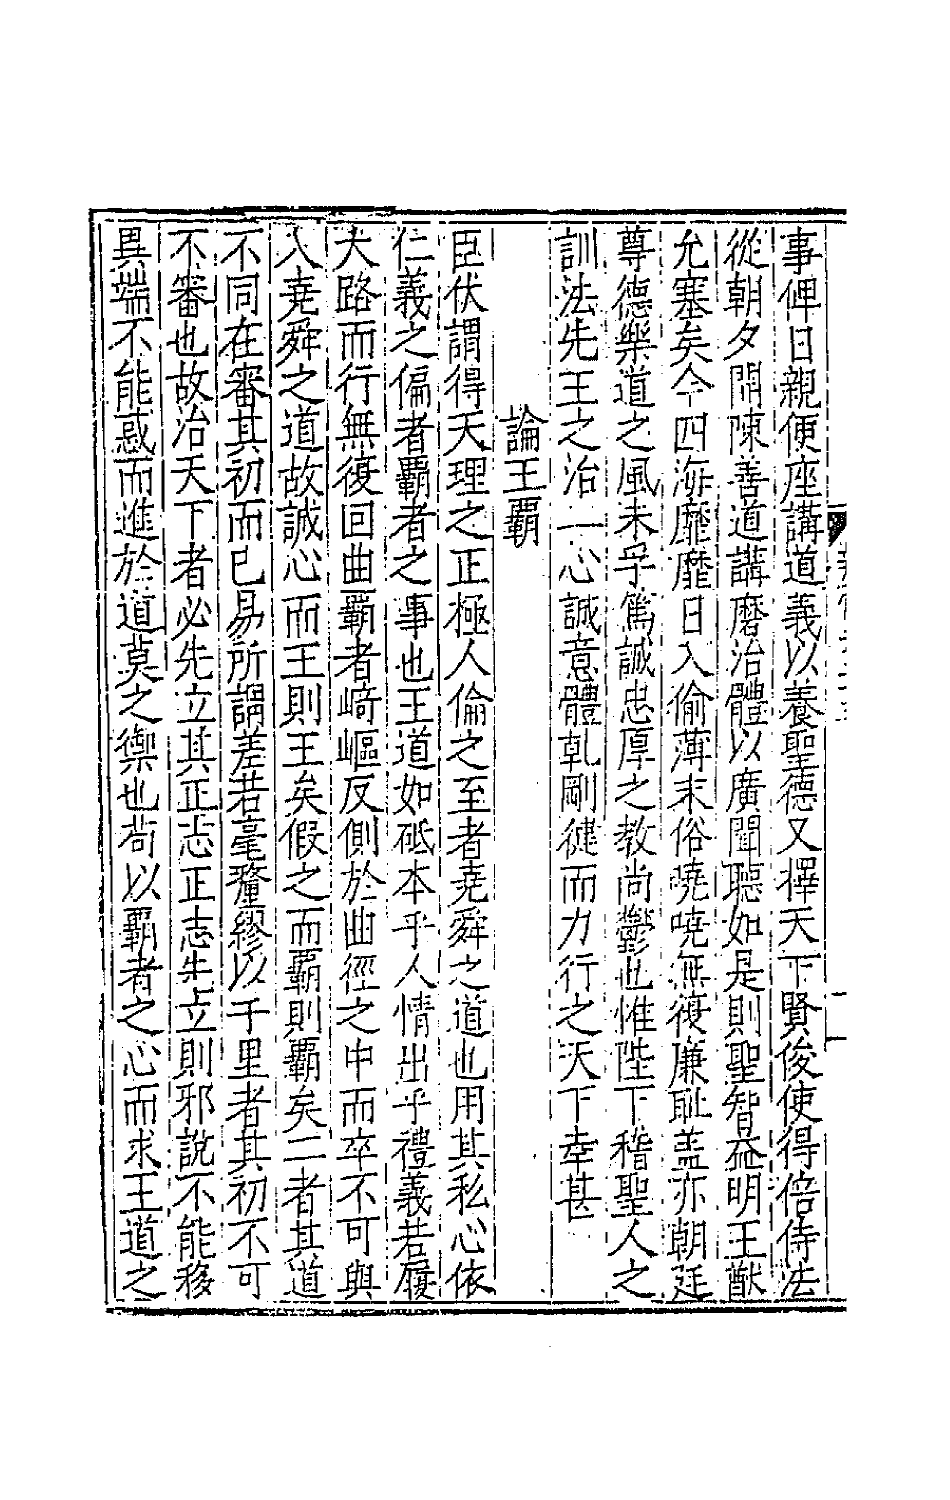 事俾日親便座講道義以養聖德又擇天下賢俊使得倍侍法
從朝夕開陳善道講磨治體以廣聞聽如是則聖智益明王猷
允塞矣今四海靡靡日入偷薄末俗嘵嘵無復廉耻盖亦朝廷
尊德樂道之風未孚篤誠忠厚之教尚鬱也惟陛下稽聖人之
訓法先王之治一心誠意體乹剛健而力行之天下幸甚
論王霸
臣伏謂得天理之正極人倫之至者堯舜之道也用其私心依
仁義之偏者霸者之事也王道如砥本乎人情出乎禮義若履
大路而行無復回曲霸者﨑嶇反側於曲徑之中而卒不可與
入堯舜之道故誠心而王則王矣假之而霸則霸矣二者其道
不同在審其初而已易所謂差若毫釐繆以千里者其初不可
不審也故治天下者必先立其正志正志先立則邪說不能移
異端不能惑而進於道莫之禦也茍以霸者之心而求王道之